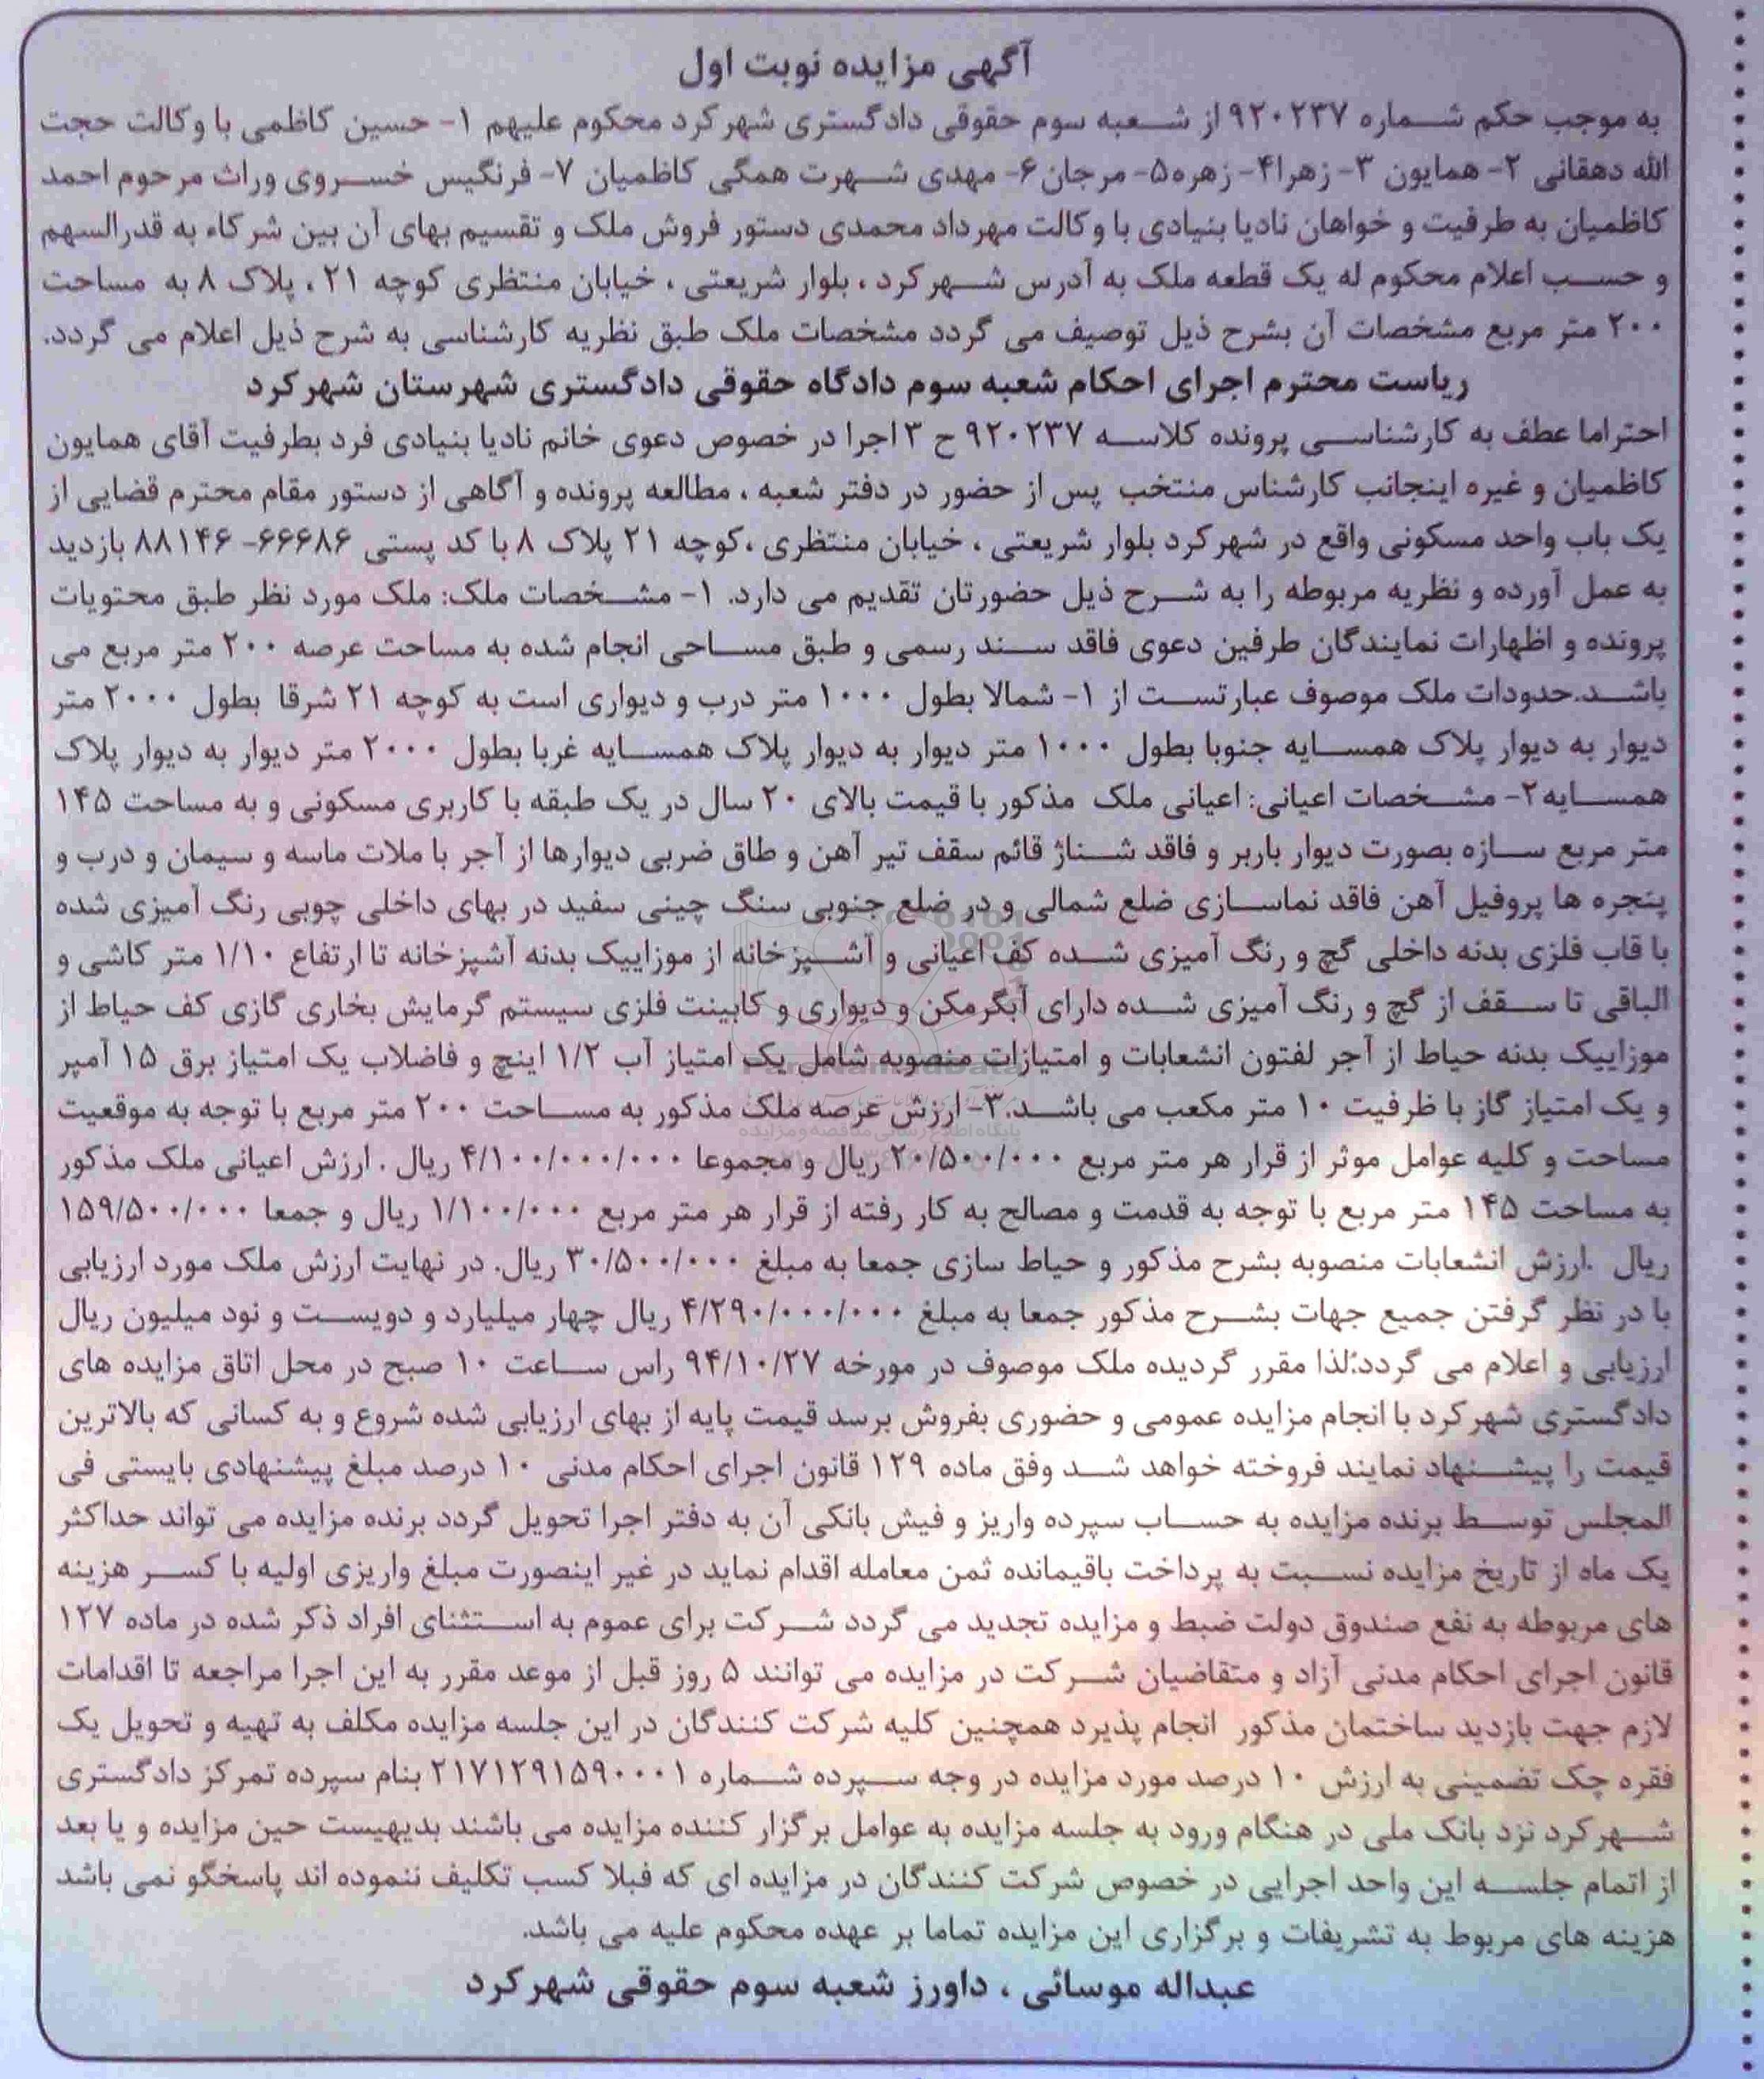 آگهی مزایده نوبت اول
به موجب حکم شماره ۹۲۰۲۳۷ از شعبه سوم حقوقی دادگستری شهرکرد محکوم علیهم ۱- حسین کاظمی با وکالت حجت
الله دهقانی ۲- همایون ۳- زهرا۴- زهره۵- مرجان۶- مهدی شهرت همگی کاظمیان ۷- فرنگیس خسروی وراث مرحوم احمد
کاظمیان به طرفیت و خواهان نادیا بنیادی با وکالت مهرداد محمدی دستور فروش ملک و تقسیم بهای آن بین شرکاء به قدرالسهم
و حسب اعلام محکوم له یک قطعه ملک به آدرس شهرکرد ، بلوار شریعتی ، خیابان منتظری کوچه ۲۱ ، پلاک ۸ به مساحت
۲۰۰ متر مربع مشخصات آن بشرح ذیل توصیف می گردد مشخصات ملک طبق نظریه کارشناسی به شرح ذیل اعلام می گردد.
ریاست محترم اجرای احکام شعبه سوم دادگاه حقوقی دادگستری شهرستان شهرکرد
احتراما عطف به کارشناسی پرونده کلاسه ۹۲۰۲۳۷ ح ۳ اجرا در خصوص دعوی خانم نادیا بنیادی فرد بطرفیت آقای همایون
کاظمیان و غیره اینجانب کارشناس منتخب پس از حضور در دفتر شعبه ، مطالعه پرونده و آگاهی از دستور مقام محترم قضایی از
یک باب واحد مسکونی واقع در شهرکرد بلوار شریعتی ، خیابان منتظری ،کوچه ۲۱ پلاک ۸ با کد پستی ۶۶۶۸۶- ۸۸۱۴۶ بازدید
به عمل آورده و نظریه مربوطه را به شرح ذیل حضورتان تقدیم می دارد. ۱- مشخصات ملک: ملک مورد نظر طبق محتویات
پرونده و اظهارات نمایندگان طرفین دعوی فاقد سند رسمی و طبق مساحی انجام شده به مساحت عرصه ۲۰۰ متر مربع می
باشد.حدودات ملک موصوف عبارتست از ۱- شمالا بطول ۱۰۰۰ متر درب و دیواری است به کوچه ۲۱ شرقا بطول ۲۰۰۰ متر
دیوار به دیوار پلاک همسایه جنوبا بطول ۱۰۰۰ متر دیوار به دیوار پلاک همسایه غربا بطول ۲۰۰۰ متر دیوار به دیوار پلاک
همسایه۲- مشخصات اعیانی: اعیانی ملک مذکور با قیمت بالای ۲۰ سال در یک طبقه با کاربری مسکونی و به مساحت ۱۴۵
متر مربع سازه بصورت دیوار باربر و فاقد شناژ قائم سقف تیر آهن و طاق ضربی دیوارها از آجر با ملات ماسه و سیمان و درب و
پنجره ها پروفیل آهن فاقد نماسازی ضلع شمالی و در ضلع جنوبی سنگ چینی سفید در بهای داخلی چوبی رنگ آمیزی شده
با قاب فلزی بدنه داخلی گچ و رنگ آمیزی شده کف اعیانی و آشپزخانه از موزاییک بدنه آشپزخانه تا ارتفاع ۱/۱۰ متر کاشی و
الباقی تا سقف از گچ و رنگ آمیزی شده دارای آبگرمکن و دیواری و کابینت فلزی سیستم گرمایش بخاری گازی کف حیاط از
موزاییک بدنه حیاط از آجر لفتون انشعابات و امتیازات منصوبه شامل یک امتیاز آب ۱/۲ اینچ و فاضلاب یک امتیاز برق ۱۵ آمپر
و یک امتیاز گاز با ظرفیت ۱۰ متر مکعب می باشد.۳- ارزش عرصه ملک مذکور به مساحت ۲۰۰ متر مربع با توجه به موقعیت
مساحت و کلیه عوامل موثر از قرار هر متر مربع ۲۰/۵۰۰/۰۰۰ ریال و مجموعا ۴/۱۰۰/۰۰۰/۰۰۰ ریال . ارزش اعیانی ملک مذکور
به مساحت ۱۴۵ متر مربع با توجه به قدمت و مصالح به کار رفته از قرار هر متر مربع ۱/۱۰۰/۰۰۰ ریال و جمعا ۱۵۹/۵۰۰/۰۰۰
ریال .ارزش انشعابات منصوبه بشرح مذکور و حیاط سازی جمعا به مبلغ ۳۰/۵۰۰/۰۰۰ ریال. در نهایت ارزش ملک مورد ارزیابی
با در نظر گرفتن جمیع جهات بشرح مذکور جمعا به مبلغ ۴/۲۹۰/۰۰۰/۰۰۰ ریال چهار میلیارد و دویست و نود میلیون ریال
ارزیابی و اعلام می گردد؛لذا مقرر گردیده ملک موصوف در مورخه ۹۴/۱۰/۲۷ راس ساعت ۱۰ صبح در محل اتاق مزایده های
دادگستری شهرکرد با انجام مزایده عمومی و حضوری بفروش برسد قیمت پایه از بهای ارزیابی شده شروع و به کسانی که بالاترین
قیمت را پیشنهاد نمایند فروخته خواهد شد وفق ماده ۱۲۹ قانون اجرای احکام مدنی ۱۰ درصد مبلغ پیشنهادی بایستی فی
المجلس توسط برنده مزایده به حساب سپرده واریز و فیش بانکی آن به دفتر اجرا تحویل گردد برنده مزایده می تواند حداکثر
یک ماه از تاریخ مزایده نسبت به پرداخت باقیمانده ثمن معامله اقدام نماید در غیر اینصورت مبلغ واریزی اولیه با کسر هزینه
های مربوطه به نفع صندوق دولت ضبط و مزایده تجدید می گردد شرکت برای عموم به استثنای افراد ذکر شده در ماده ۱۲۷
قانون اجرای احکام مدنی آزاد و متقاضیان شرکت در مزایده می توانند ۵ روز قبل از موعد مقرر به این اجرا مراجعه تا اقدامات
لازم جهت بازدید ساختمان مذکور انجام پذیرد همچنین کلیه شرکت کنندگان در این جلسه مزایده مکلف به تهیه و تحویل یک
فقره چک تضمینی به ارزش ۱۰ درصد مورد مزایده در وجه سپرده شماره ۲۱۷۱۲۹۱۵۹۰۰۰۱ بنام سپرده تمرکز دادگستری
شهرکرد نزد بانک ملی در هنگام ورود به جلسه مزایده به عوامل برگزار کننده مزایده می باشند بدیهیست حین مزایده و یا بعد
از اتمام جلسه این واحد اجرایی در خصوص شرکت کنندگان در مزایده ای که قبلا کسب تکلیف ننموده اند پاسخگو نمی باشد
هزینه های مربوط به تشریفات و برگزاری این مزایده تماما بر عهده محکوم علیه می باشد.
عبداله موسائی ، داورز شعبه سوم حقوقی شهرکرد